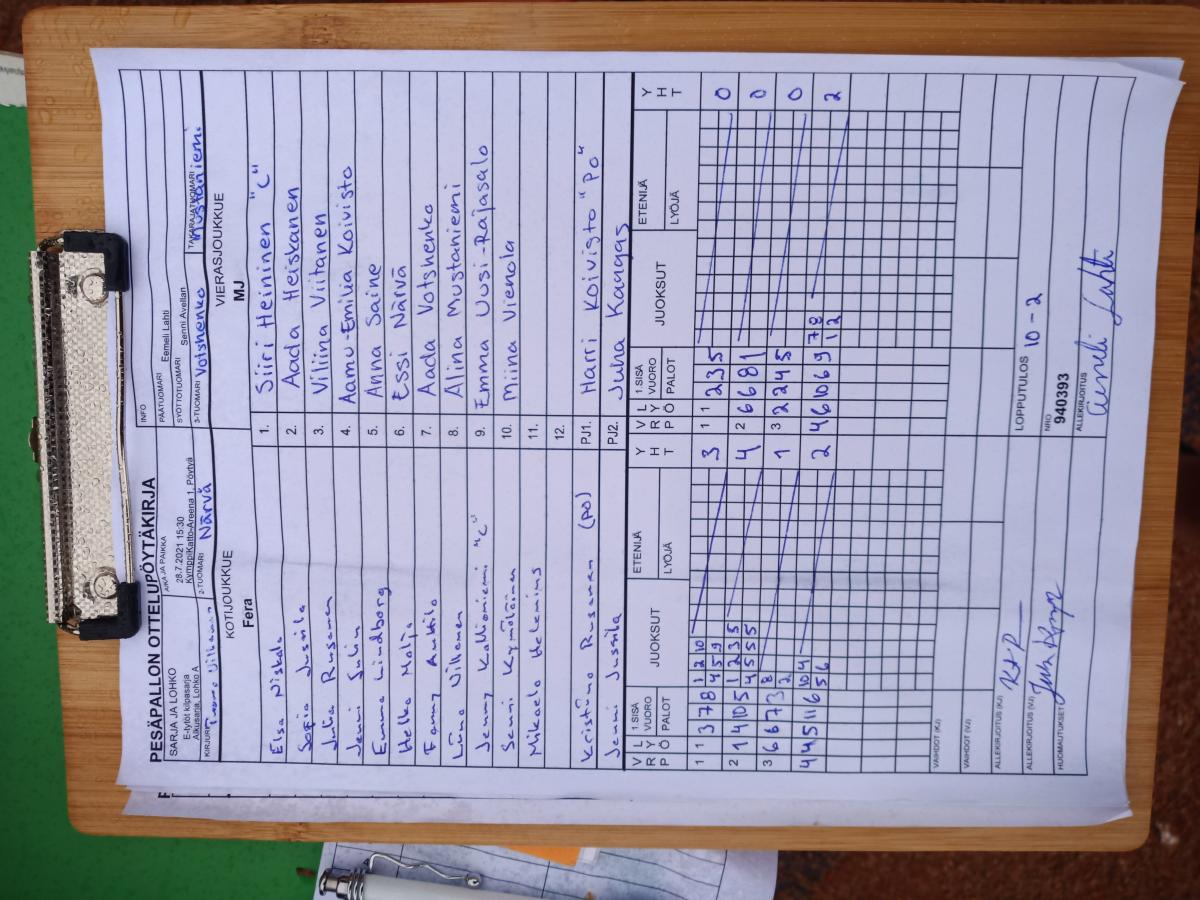 PESÄPALLON OTTELUPÖYTÄKIRJA
SARJA JA LOHKO
E-tytöt kilpasarja
Alkusarja, Lohko A
AIKA JA PAIKKA
28.7.2021 15:30
KymppiKatto-Areena 1, Pöytyä
INFO
PÄÄTUOMARI Eemeli Lahti
SYÖTTÖTUOMARI Senni Avellan
KIRJURI
2-TUOMARI Närvä
3-TUOMARI Votshenko
TAKARAJATUOMARI Mustaniemi
KOTIJOUKKUE
Fera
VIERASJOUKKUE
MJ
Elsa Niskala 1. Siiri Heininen "C"
Sofia Jussila 2. Aada Heiskanen
Julia Rusanen 3. Viliina Viitanen
Jenni Sulin 4. Aamu-Emilia Koivisto
Emma Lindborg 5. Anna Saine
Helka Malja 6. Essi Närvä
Fanny Anttila 7. Aada Votshenko
Luna Vilkman 8. Alina Mustaniemi
Jenny Kalliomiemi "C" 9. Emma Uusi-Rajasalo
Senni Kymöläinen 10. Miina Vienola
Mikaela Helenius 11.
12.
Kristiina Rusanen (PO) PJ1. Harri Koivisto "Po"
Jenni Jussila PJ2. Juha Kangas
V R L Y Ö 1.SISÄ VUORO PALOT JUOKSUT ETENIJÄ LYÖJÄ Y H T V R L Y Ö 1.SISÄ VUORO PALOT JUOKSUT ETENIJÄ LYÖJÄ Y H T
1 1 3 7 8 1 2 10 3 1 1 2 3 5 0
4 5 9
2 1 4 10 5 1 2 3 5 4 2 6 6 8 1 0
4 5 5 5
3 6 6 7 3 8 1 3 2 2 4 5 0
2
4 4 5 11 6 10 4 2 4 6 10 6 9 7 8 2
5 6 1 2
VAIHDOT (KJ)
VAIHDOT (VJ)
ALLEKIRJOITUS (KJ) LOPPUTULOS 10 - 2
ALLEKIRJOITUS (VJ) NRO 940393
HUOMAUTUKSET ALLEKIRJOITUS Eemeli Lahti